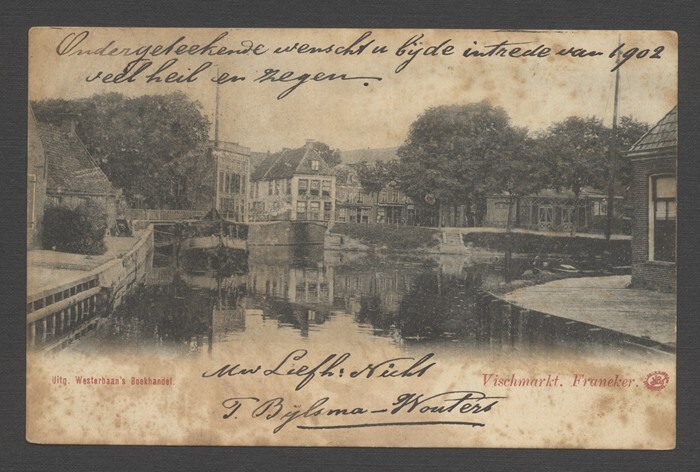 Ondergeteekende wenscht u bij de intrede van 1902
veel heil en zegen.
Uitg. Westerbaan's Boekhandel
Uw Liefh: Nicht
Vischmarkt. Franeker.
T. Bijlsma-Wouters